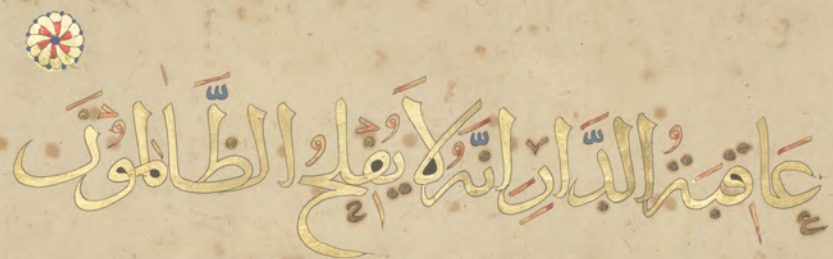 عَاقِبَةُ الدَّارِ إِنَّهُ لَا يُفْلِحُ الظَّالِمُونَ